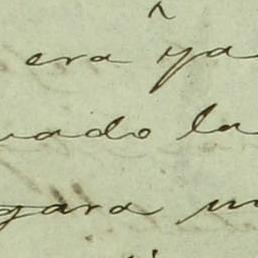 era ya
uado la
gara un